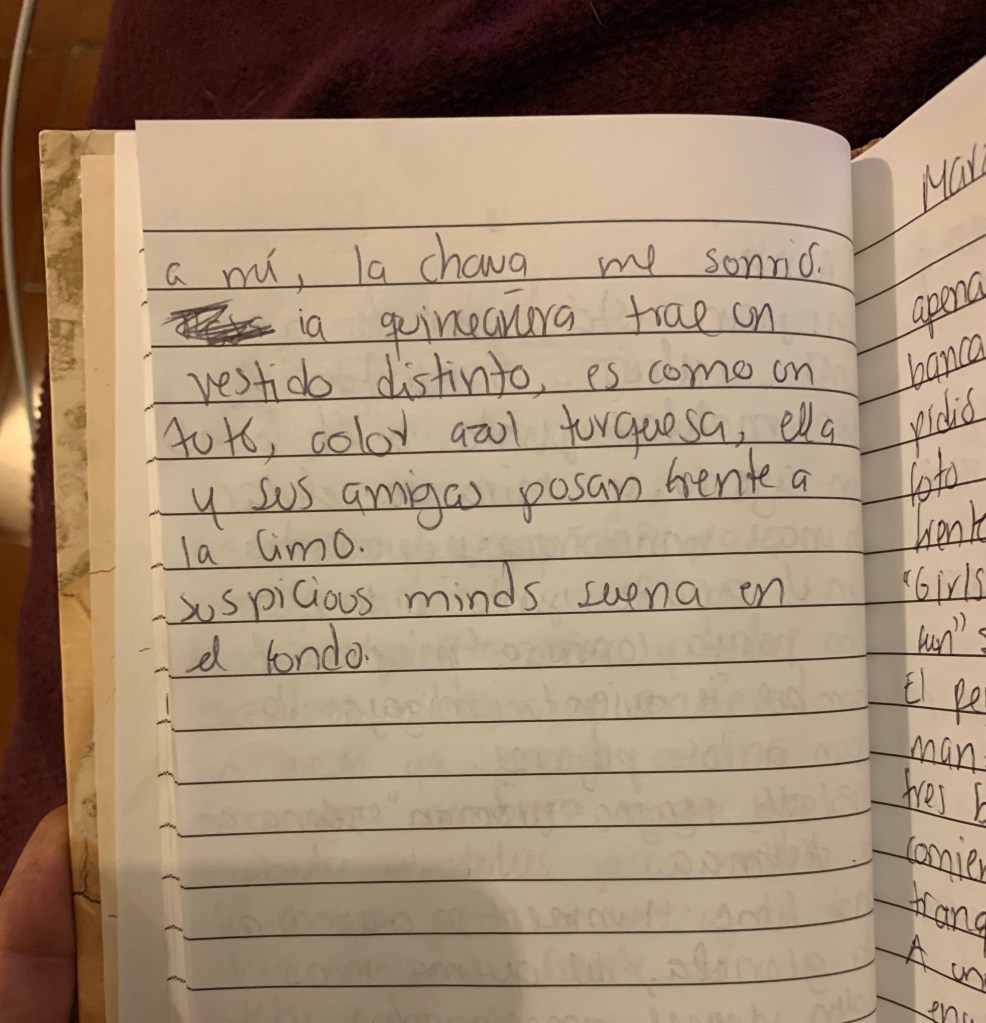 a mí, la chava me sonrió.
la quinceañera trae un
vestido distinto, es como un
tutú, color azul turquesa, ella
y sus amigas posan frente a
la limo.
suspicious minds suena en
el fondo.
apena
banca
pidió
foto
frente
"Girls
fun" s
El pe
man
tres b
comien
tranq
A un